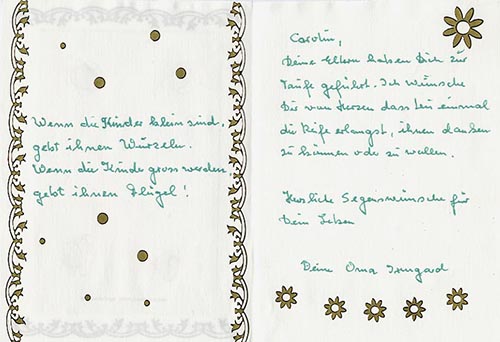 Wenn die Kinder klein sind,
gebt ihnen Wurzeln.
Wenn die Kinder gross werden
gebt ihnen Flügel!
Carolin,
Deine Eltern haben Dich zur
Taufe geführt. Ich wünsche
Dir von Herzen dass Du einmal
die Reife erlangst, ihnen danken
zu können oder zu wollen.
Herzliche Segenswünsche für
Dein Leben
Deine Oma Irmgard